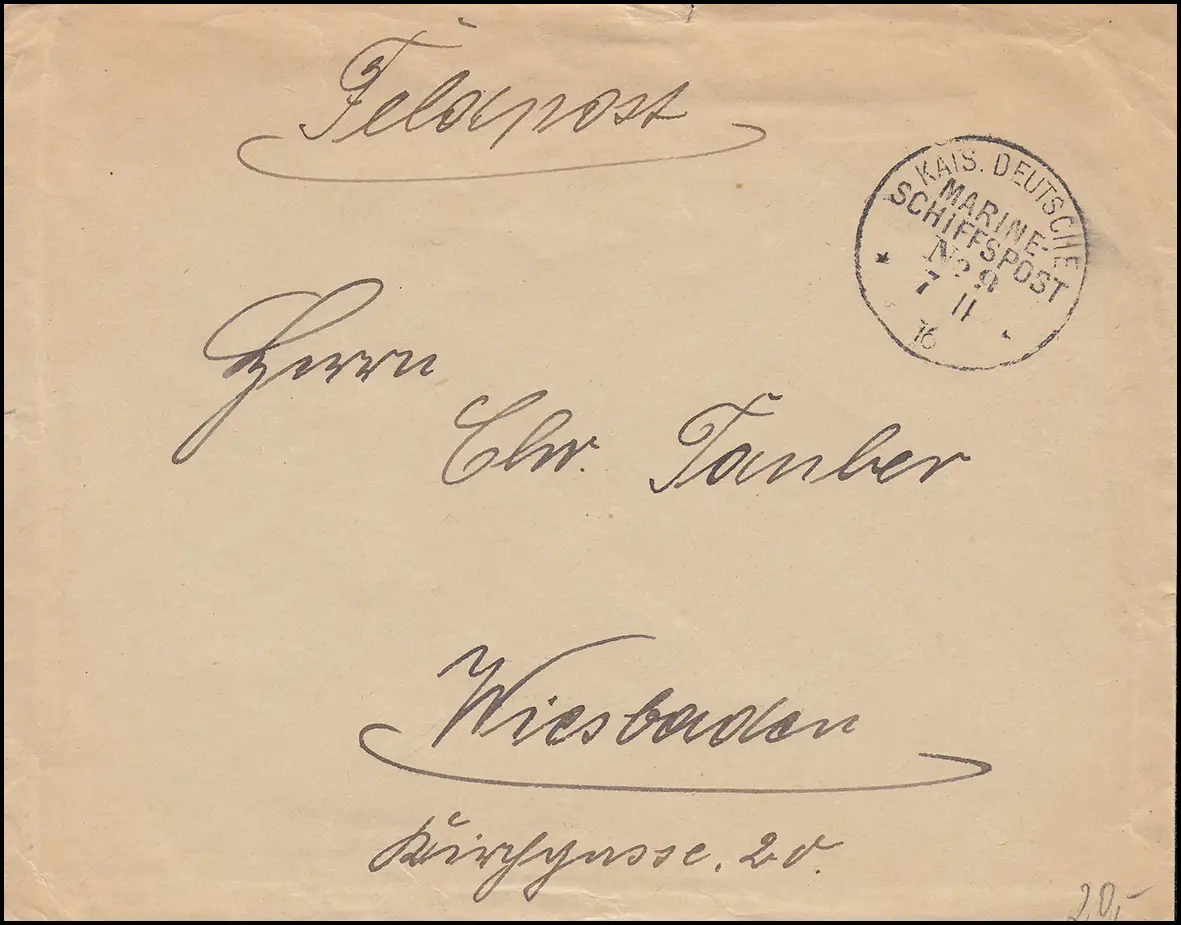 Feldpost
KAIS. DEUTSCHE
MARINE-
SCHIFFSPOST
No 9
7 11
16
Herrn
Chr. Tauber
Wiesbaden
Kirchgasse. 20.
20,-